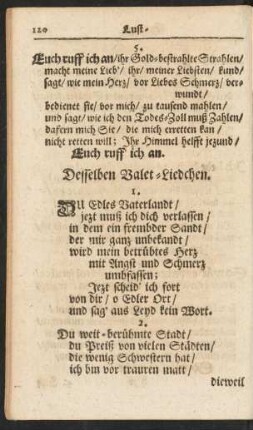 120 Lust-
5.
Euch ruff ich an/ihr Gold-bestrahlte Strahlen/
macht meine Lieb'/ ihr/ meiner Liebsten/ kund/
sagt/ wie mein Hertz/ vor Liebes Schmertz/ ver-
wundt/
bedienet sie/ vor mich/ zu tausend mahlen/
und sagt/ wie ich den Todes-Zoll muß Zahlen/
dafern mich Sie/ die mich erretten kan/
nicht retten will; Ihr Himmel helfft jezund/
Euch ruff ich an.
Desselben Valet-Liedchen.
1.
DU Edles Vaterlandt/
jezt muß ich dich verlassen/
in dem ein frembder Sandt/
der mir ganz unbekandt/
wird mein betrübtes Hertz
mit Angst und Schmertz
umbfassen;
Jezt scheid' ich fort
von dir/ o Edler Ort/
und sag' aus Leyd kein Wort.
2.
Du weit-berühmte Stadt/
du Preiß von vielen Städten/
die wenig Schwestern hat/
ich bin vor trauren matt/
dieweil